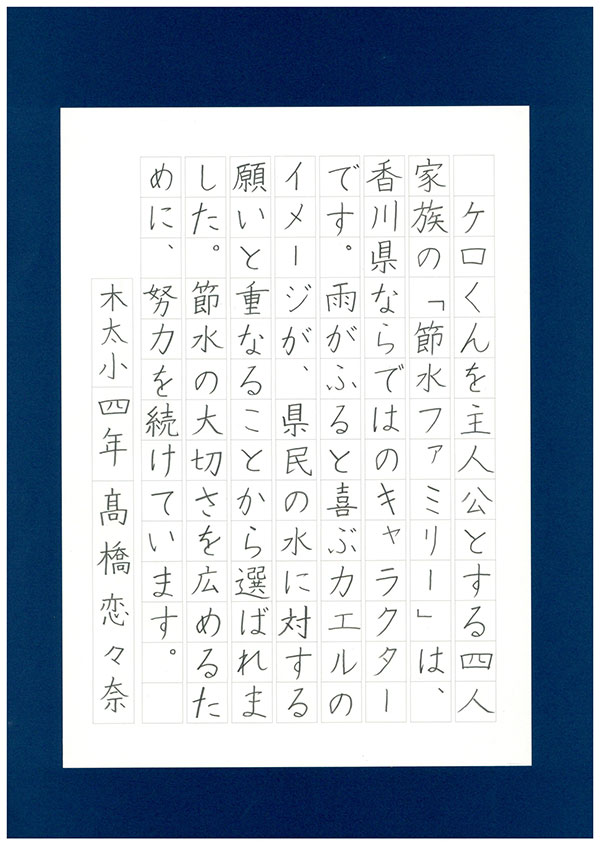 ケロくんを主人公とする四人
家族の「節水ファミリー」は、
香川県ならではのキャラクター
です。雨がふると喜ぶカエルの
イメージが、県民の水に対する
願いと重なることから選ばれま
した。節水の大切さを広めるた
めに、努力を続けています。
木太小四年　髙橋恋々奈